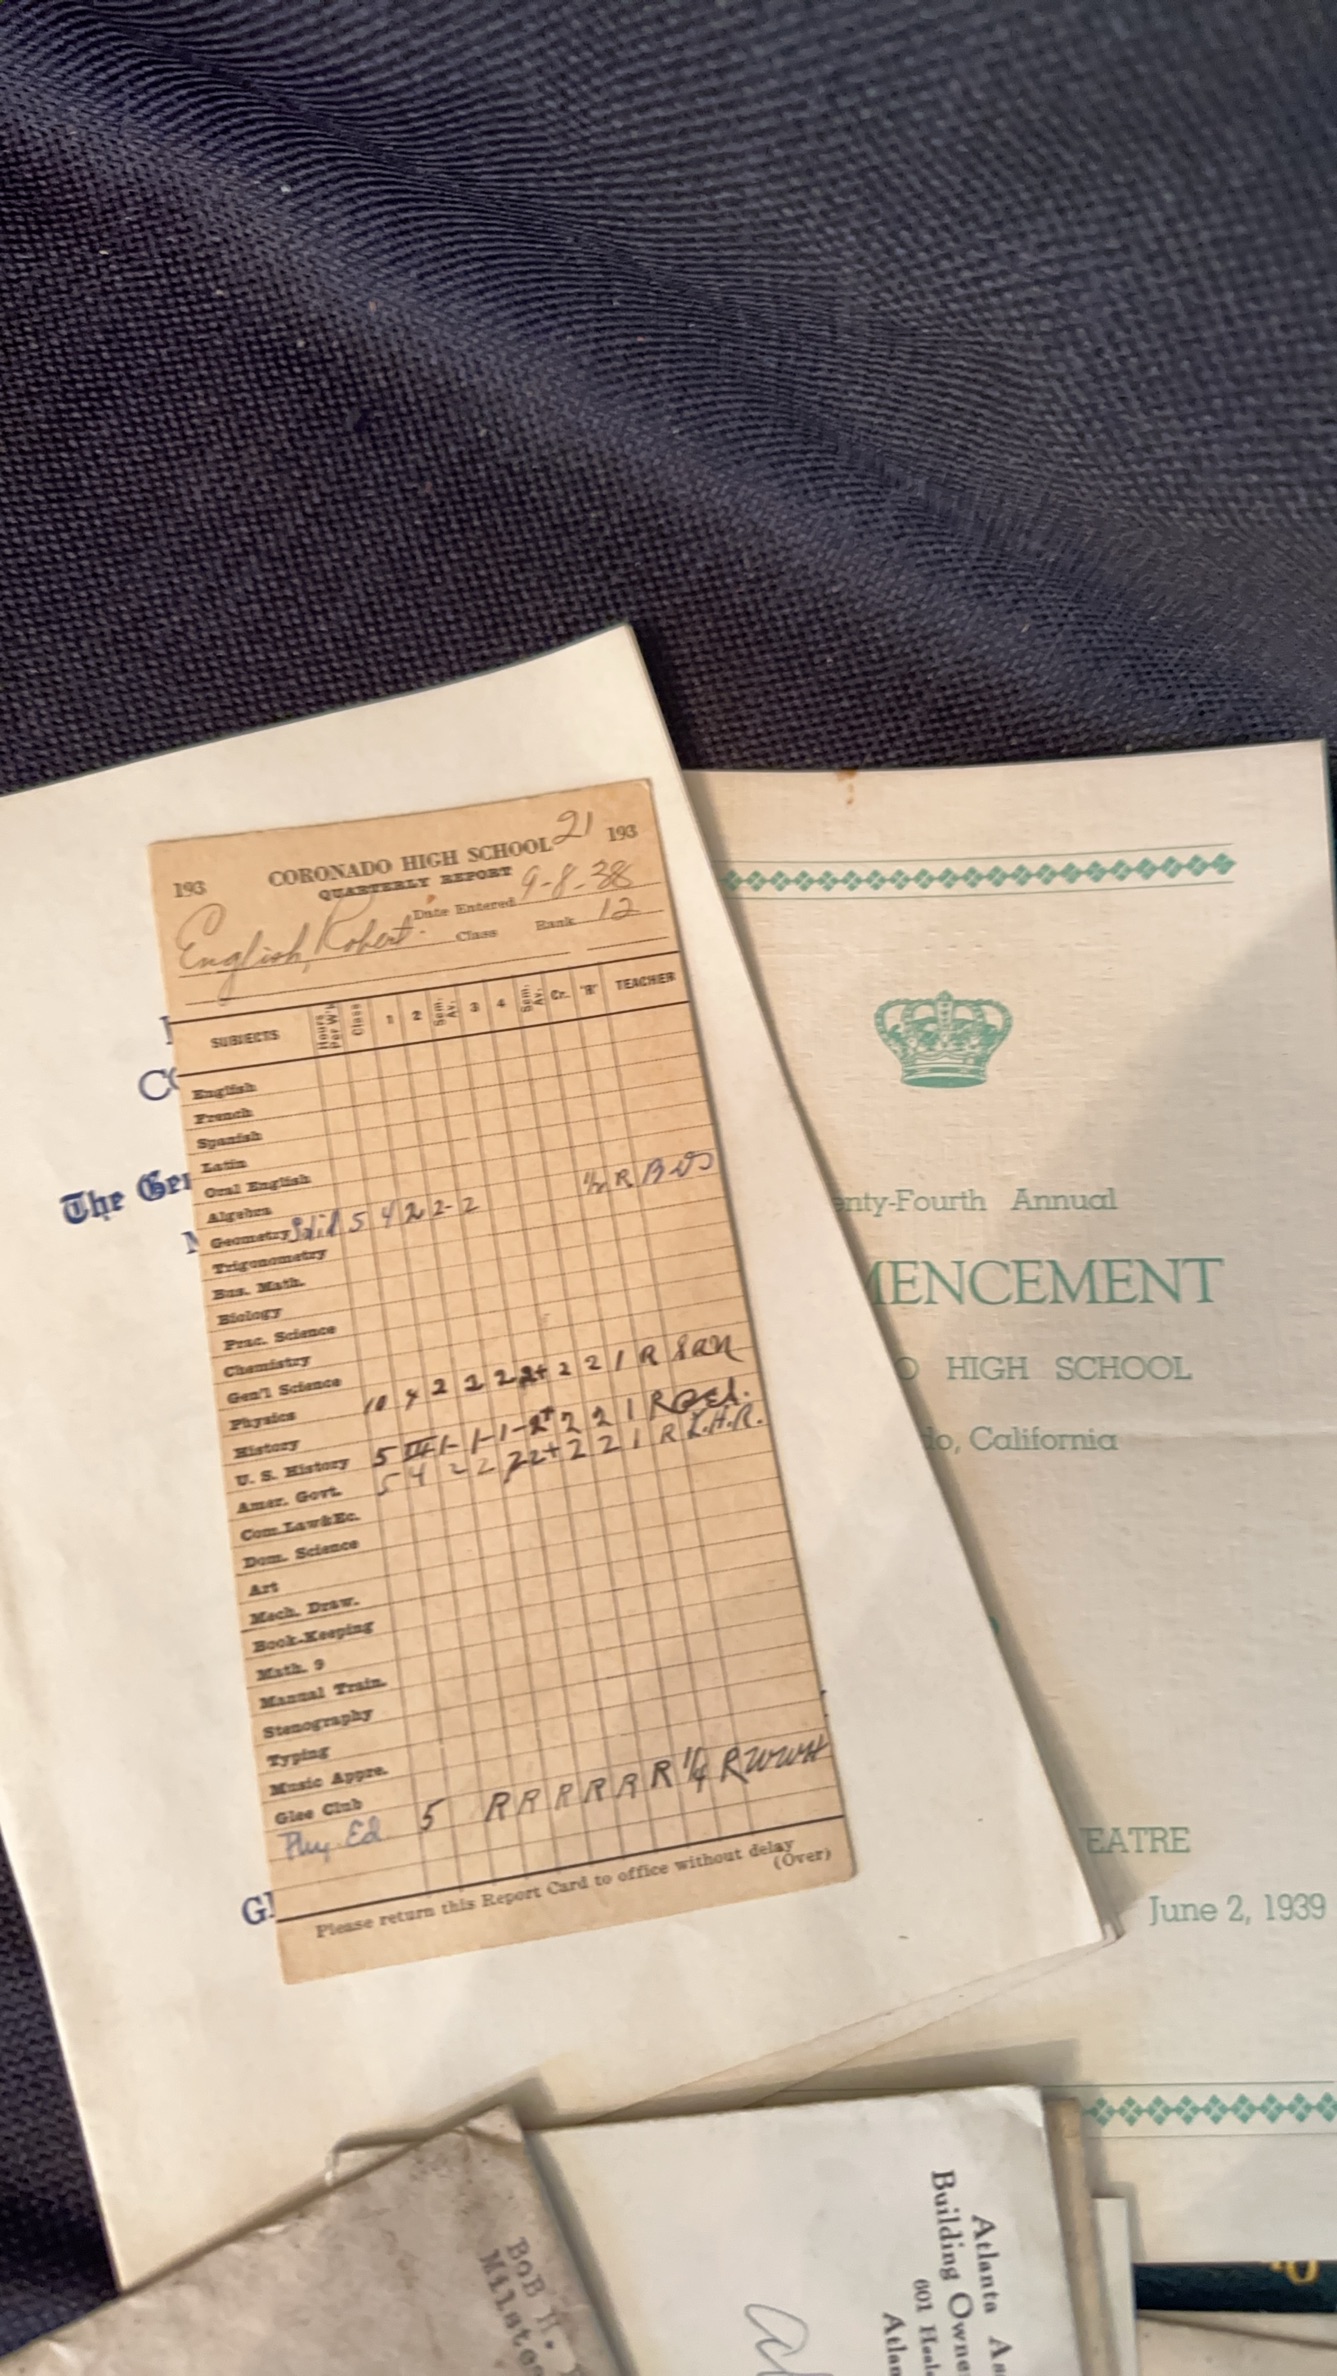 193 CORONADO HIGH SCHOOL 21 193
QUARTERLY REPORT
Date Entered 9-8-38
English, Robert. Class Rank 12
SUBJECTS Hours Per W'k Class 1 2 Sem. Av. 3 4 Sem. Av. Cr. "R" TEACHER
English
French
Spanish
Latin
Oral English
Algebra
Geometry Solid 5 4 2 2- 2 1/2 R
Trigonometry
Bus. Math.
Biology
Prac. Science
Chemistry
Gen'l Science
Physics 10 4 2 2 2 2+ 2 2 1 R
History
U. S. History 5 III 1- 1- 1- 2+ 2 2 1 R
Amer. Govt. 5 4 2 2 2 2+ 2 2 1 R L.H.R.
Com. Law & Ec.
Dom. Science
Art
Mech. Draw.
Book-Keeping
Math. 9
Manual Train.
Stenography
Typing
Music Appre.
Glee Club
Phy. Ed 5 R R R R R R 1/4 R WWH
Please return this Report Card to office without delay
(Over)
The
nty-Fourth Annual
MENCEMENT
O HIGH SCHOOL
do, California
EATRE
June 2, 1939
BoB
Atlanta As
Building Owne
601
Atlan